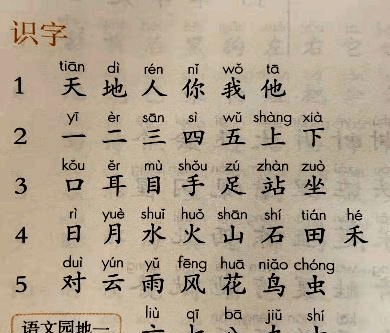 识字
tiān dì rén nǐ wǒ tā
1 天 地 人 你 我 他
yī èr sān sì wǔ shàng xià
2 一 二 三 四 五 上 下
kǒu ěr mù shǒu zú zhàn zuò
3 口 耳 目 手 足 站 坐
rì yuè shuǐ huǒ shān shí tián hé
4 日 月 水 火 山 石 田 禾
duì yún yǔ fēng huā niǎo chóng
5 对 云 雨 风 花 鸟 虫
liù qī bā jiǔ shí
语文园地一